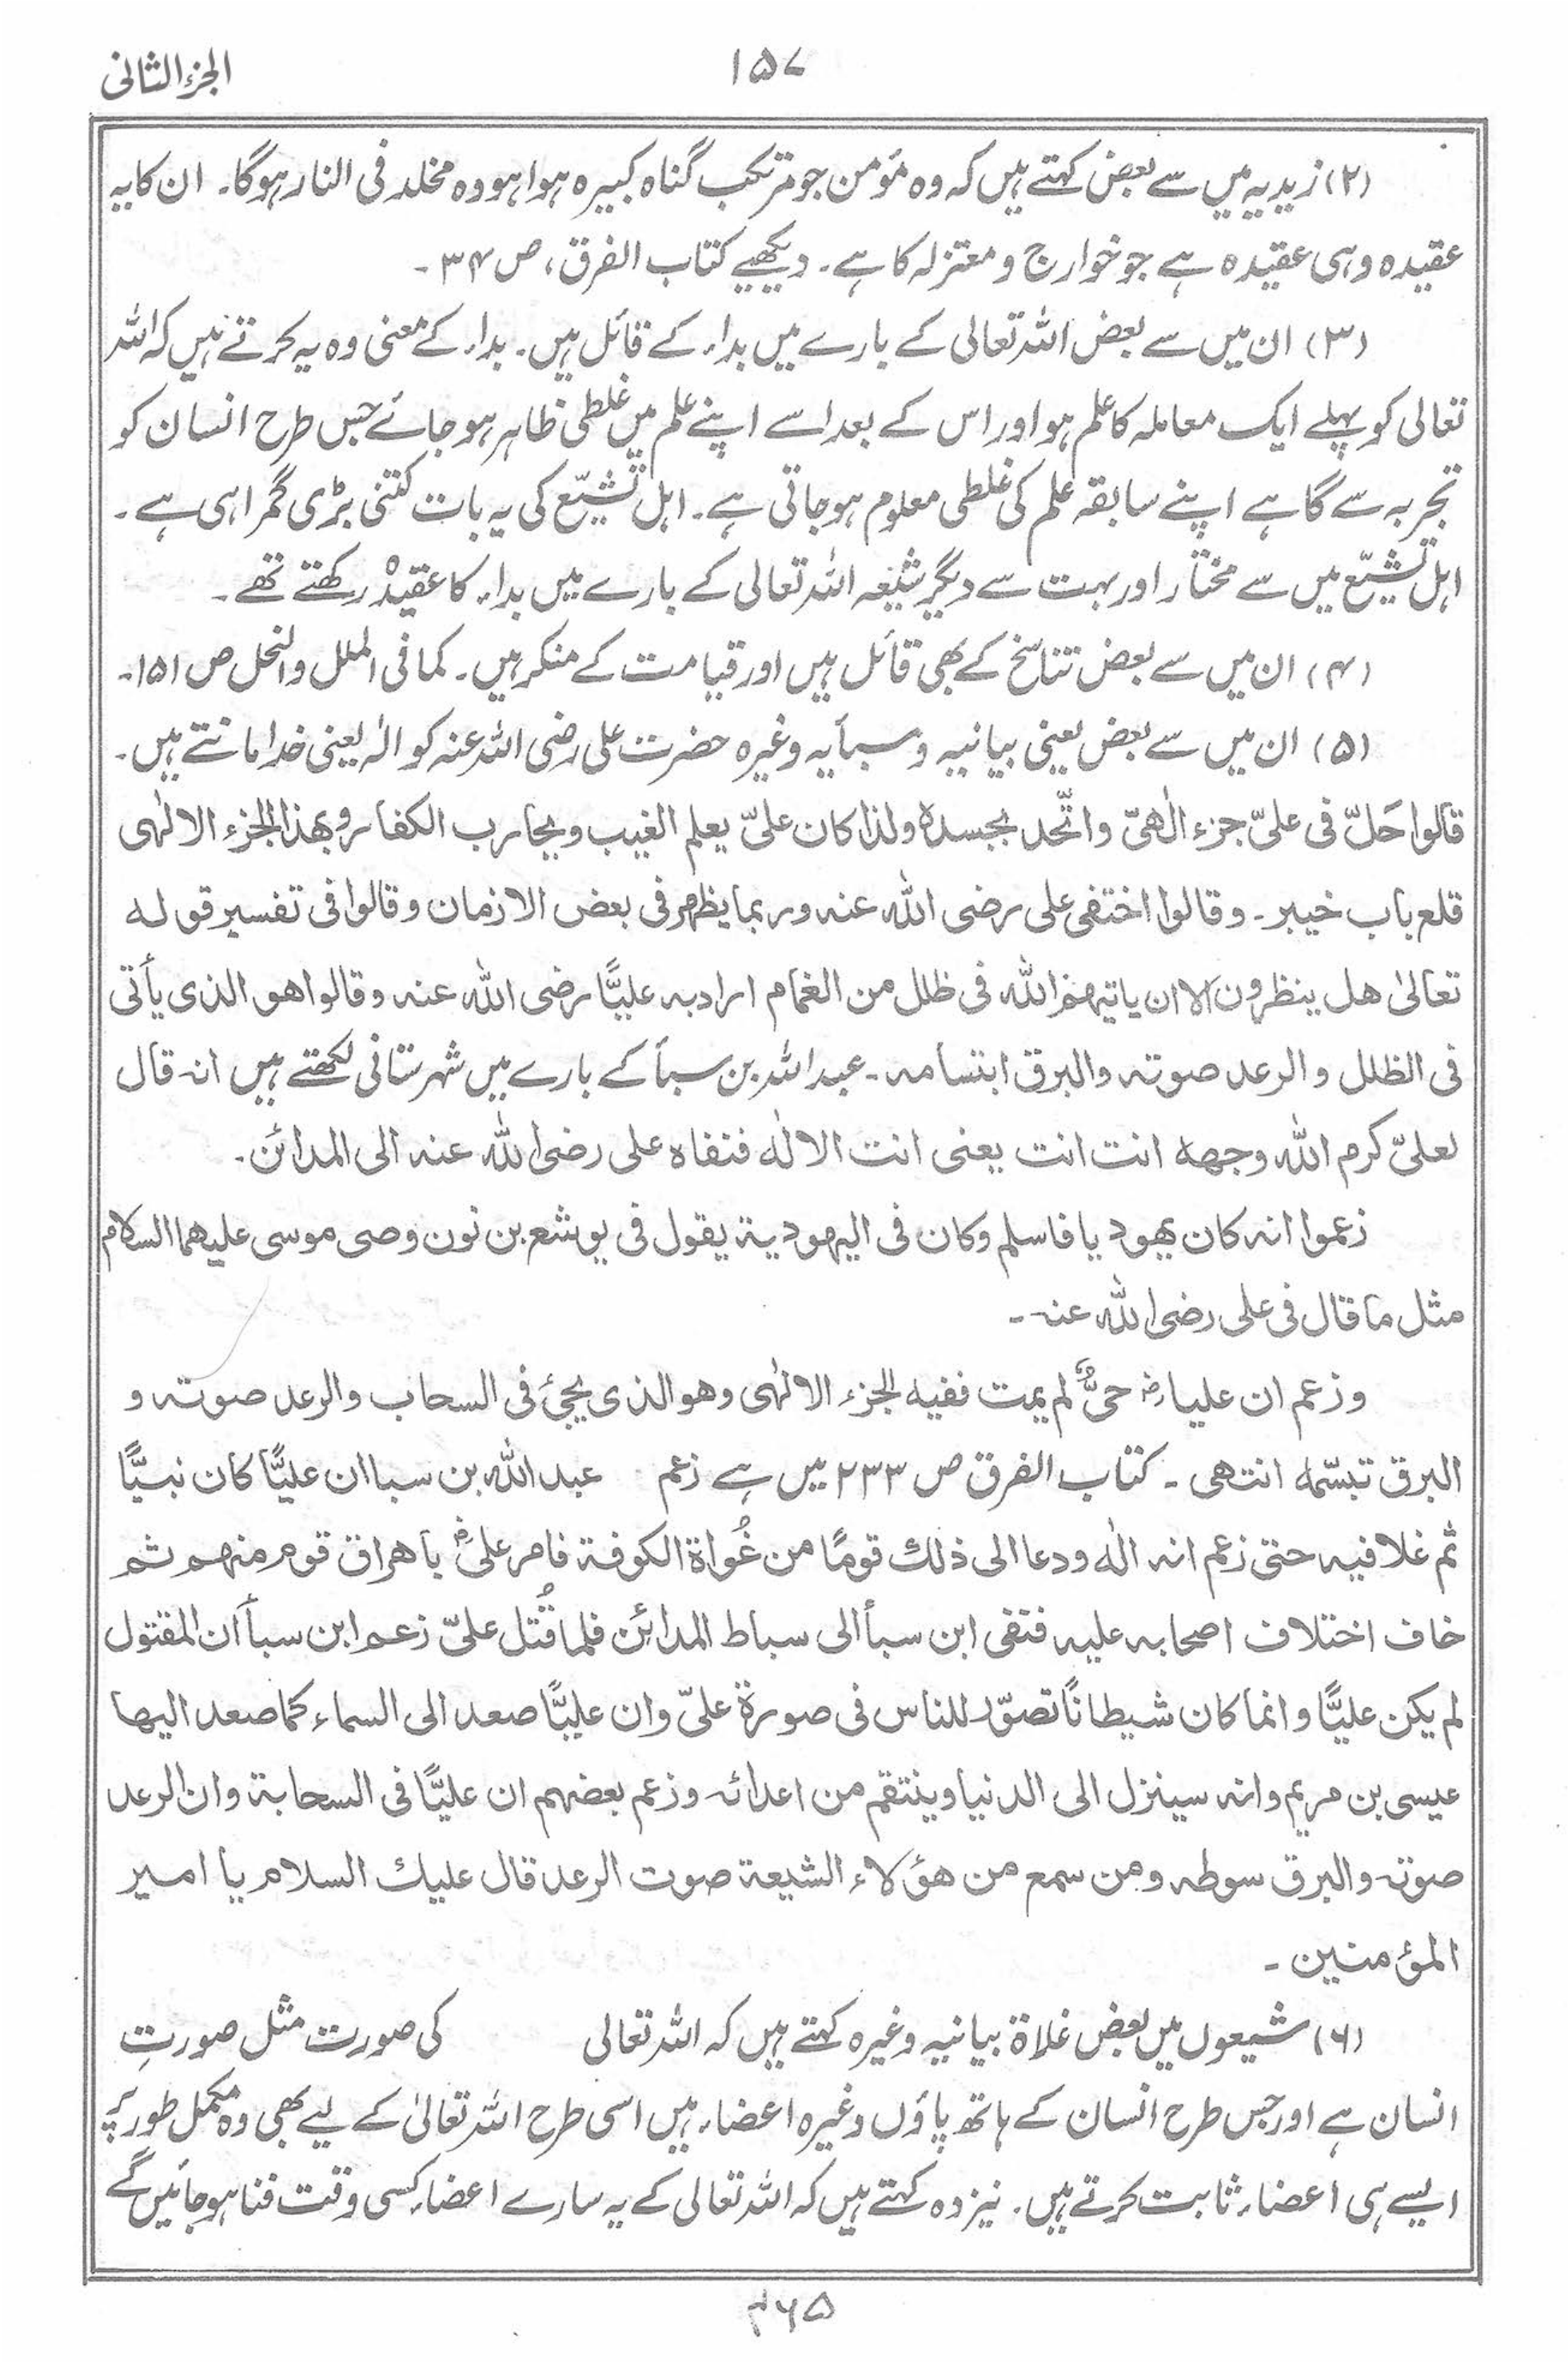 الجزء الثانی
۱۵۷
(۲) زیدیہ میں سے بعض کہتے ہیں کہ وہ مؤمن جو مرتکب گناہ کبیرہ ہوا ہو وہ مخلد فی النار ہوگا۔ ان کا یہ
عقیدہ وہی عقیدہ ہے جو خوارج و معتزلہ کا ہے۔ دیکھیے کتاب الفرق، ص ۳۴۔
(۳) ان میں سے بعض اللہ تعالی کے بارے میں بداء کے قائل ہیں۔ بداء کے معنی وہ یہ کرتے ہیں کہ اللہ
تعالی کو پہلے ایک معاملہ کا علم ہو اور اس کے بعد اسے اپنے علم میں غلطی ظاہر ہو جائے جس طرح انسان کو
تجربہ سے گاہے اپنے سابقہ علم کی غلطی معلوم ہو جاتی ہے۔ اہل تشیّع کی یہ بات کتنی بڑی گمراہی ہے۔
اہل تشیّع میں سے مختار اور بہت سے دیگر شیعہ اللہ تعالی کے بارے میں بداء کا عقیدہ رکھتے تھے۔
(۴) ان میں سے بعض تناسخ کے بھی قائل ہیں اور قیامت کے منکر ہیں۔ کما فی الملل والنحل ص ۱۵۱۔
(۵) ان میں سے بعض یعنی بیانیہ و سبأیہ وغیرہ حضرت علی رضی اللہ عنہ کو الٰہ یعنی خدا مانتے ہیں۔
قالوا حَلّ فی علیّ جزء الٰھیّ واتّحد بجسدہ ولذا کان علیّ یعلم الغیب ویحارب الکفار وبھذا الجزء الالٰھی
قلع باب خیبر۔ وقالوا اختفی علی رضی اللہ عنہ وربما یظھر فی بعض الازمان وقالوا فی تفسیر قولہ
تعالیٰ ھل ینظرون الا ان یاتیھم اللہ فی ظلل من الغمام اراد بہ علیًّا رضی اللہ عنہ وقالوا ھو الذی یأتی
فی الظلل والرعد صوتہ والبرق ابتسامہ۔ عبد اللہ بن سبأ کے بارے میں شہرستانی لکھتے ہیں انہ قال
لعلیّ کرم اللہ وجھہ انت انت یعنی انت الالٰہ فنفاہ علی رضی اللہ عنہ الی المدائن۔
زعموا انہ کان یھودیا فاسلم وکان فی الیھودیۃ یقول فی یوشع بن نون وصی موسی علیھما السلام
مثل ما قال فی علی رضی اللہ عنہ۔
وزعم ان علیا رضؓ حیٌّ لم یمت ففیہ الجزء الالٰھی وھو الذی یجیٔ فی السحاب والرعد صوتہ و
البرق تبسّمہ انتھی۔ کتاب الفرق ص ۲۳۳ میں ہے زعم عبد اللہ بن سبا ان علیًّا کان نبیًّا
ثم غلا فیہ حتی زعم انہ الٰہ ودعا الی ذلك قومًا من غُواۃ الکوفۃ فامر علیؓ باحراق قوم منھم ثم
خاف اختلاف اصحابہ علیہ فنفی ابن سبأ الی ساباط المدائن فلما قُتل علیّ زعم ابن سبأ ان المقتول
لم یکن علیًّا وانما کان شیطانًا تصوّر للناس فی صورۃ علیّ وان علیًّا صعد الی السماء کما صعد الیھا
عیسی بن مریم وانہ سینزل الی الدنیا وینتقم من اعدائہ وزعم بعضھم ان علیًّا فی السحابۃ وان الرعد
صوتہ والبرق سوطہ ومن سمع من ھؤلاء الشیعۃ صوت الرعد قال علیك السلام یا امیر
المؤمنین۔
(۶) شیعوں میں بعض غلاۃ بیانیہ وغیرہ کہتے ہیں کہ اللہ تعالی کی صورت مثل صورتِ
انسان ہے اور جس طرح انسان کے ہاتھ پاؤں وغیرہ اعضاء ہیں اسی طرح اللہ تعالیٰ کے لیے بھی وہ مکمل طور پر
ایسے ہی اعضاء ثابت کرتے ہیں۔ نیز وہ کہتے ہیں کہ اللہ تعالی کے یہ سارے اعضاء کسی وقت فنا ہو جائیں گے